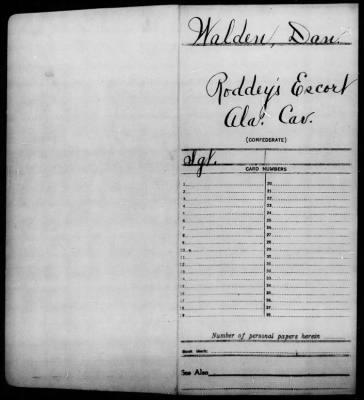 Walden, Dan.
Roddey's Escort
Ala. Cav.
(CONFEDERATE)
Sgt.
CARD NUMBERS
1 20
2 21
3 22
4 23
5 24
6 25
7 26
8 27
9 28
10 29
11 30
12 31
13 32
14 33
15 34
16 35
17 36
18 37
19 38
Number of personal papers herein
Book Mark:
See Also